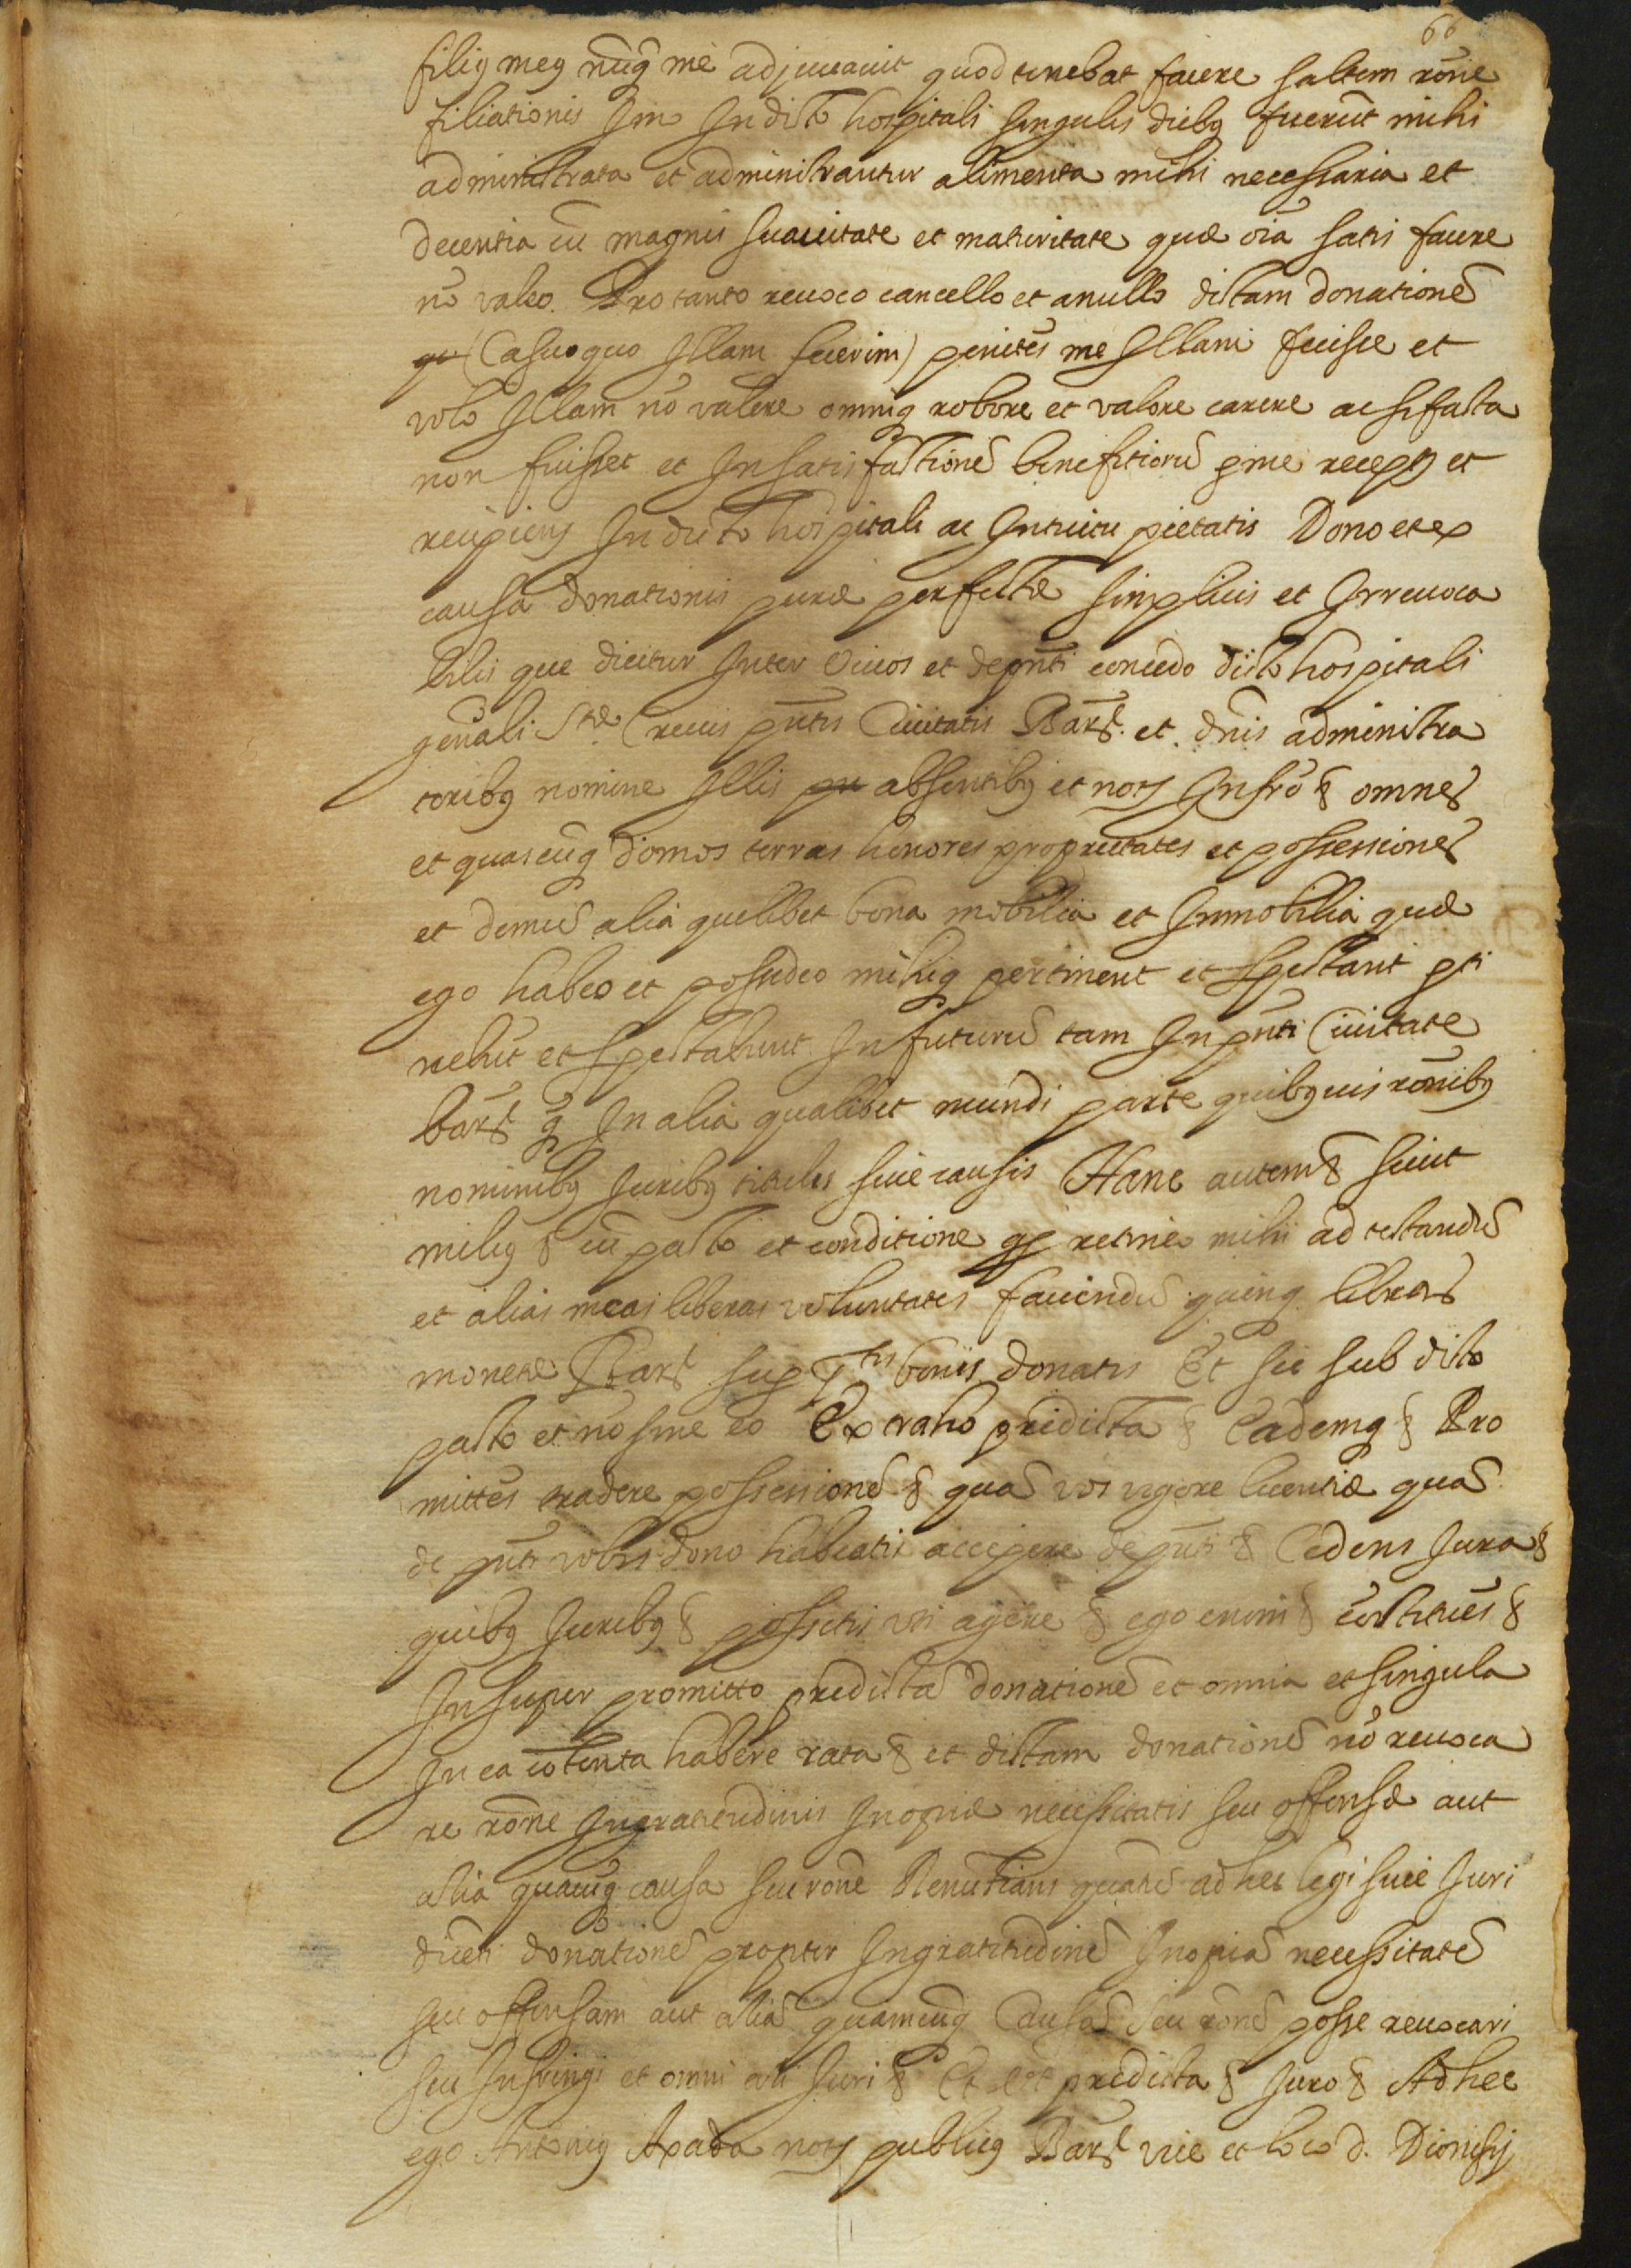 66
filiꝯ meꝯ nūq̄ me adjuuauit quod tenebat facere saltem rōne
filiationis Imo In dicto hospitali singulis diebꝯ fuerūt mihi
administrata et administrantur alimenta mihi necessaria et
decentia cū magnis suauitate et maturitate quæ oīa satis facere
nō valeo. Pro tanto reuoco cancello et anullo dictam donationē
(Casu quo Illam fecerim) penitēs me Illam fecisse et
volo Illam nō valere omniq̨ robore et valore carere ac si facta
non fuisset et In satisfactionē benefitiorū ꝑ me receptoꝝ et
recipiendoꝝ In dicto hospitali ac Intuitu pietatis Dono et ex
causa donationis puræ perfectæ simplicis et Irreuoca
bilis que dicitur Inter viuos et de pn̄ti concedo dicto hospitali
gen̄ali S.tæ Crucis pn̄tis Ciuitatis Barȝ. et dn̄is administra
toribꝯ nomine Illis absentibꝯ et notͦ Infrō § omnes
et quascūq̨ domos terras honores proprietates et possessiones
et demū alia quelibet bona mobilia et Inmobilia quæ
ego habeo et posideo mihiq̨ pertinent et spectant ꝑti
nebūt et spectabunt In futurū tam In pn̄ti Ciuitate
Barȝ q̄ In alia qualibet mundi parte quibꝯuis rōnibꝯ
nominibꝯ Juribꝯ titulis siue causis Hanc autem § sicut
meliꝯ § cū pacto et conditione qꝫ retineo mihi ad testandū
et alias meas liberas voluntates faciendū quinq̨ libras
monetæ Barȝ suꝑ bonis donatis Et sic sub dicto
pacto et nō sine eo Extraho predicta § Eademq̨ § Pro
mittēs tradere possessionē § quā vos vigore licentiæ quā
de pn̄ti vobis dono habeatis accipere de pn̄ti § Cedens Jura §
quibꝯ Juribꝯ § possitis vti agere § ego enim § cōstituēs §
Insuper promitto predictā donationē et omnia et singula
In ea cōtenta habere rata § et dictam donationē nō reuoca
re rōne Ingratitudinis Inopiæ necessitatis seu offensæ aut
alia quacūq̨ causa seu rōne Renūtians quāt̄ ad hec legi siue Juri
dicēti donationē propter Ingratitudinē Inopiā necessitatē
seu offensam aut aliā quamcūq̨ Causā seu rōnē posse reuocari
seu Infringi et omni alii Juri § Et predicta § Juro § Ad hec
ego Antoniꝯ Axada notͦ publicꝯ Barȝ vice et loco d. Dionisij